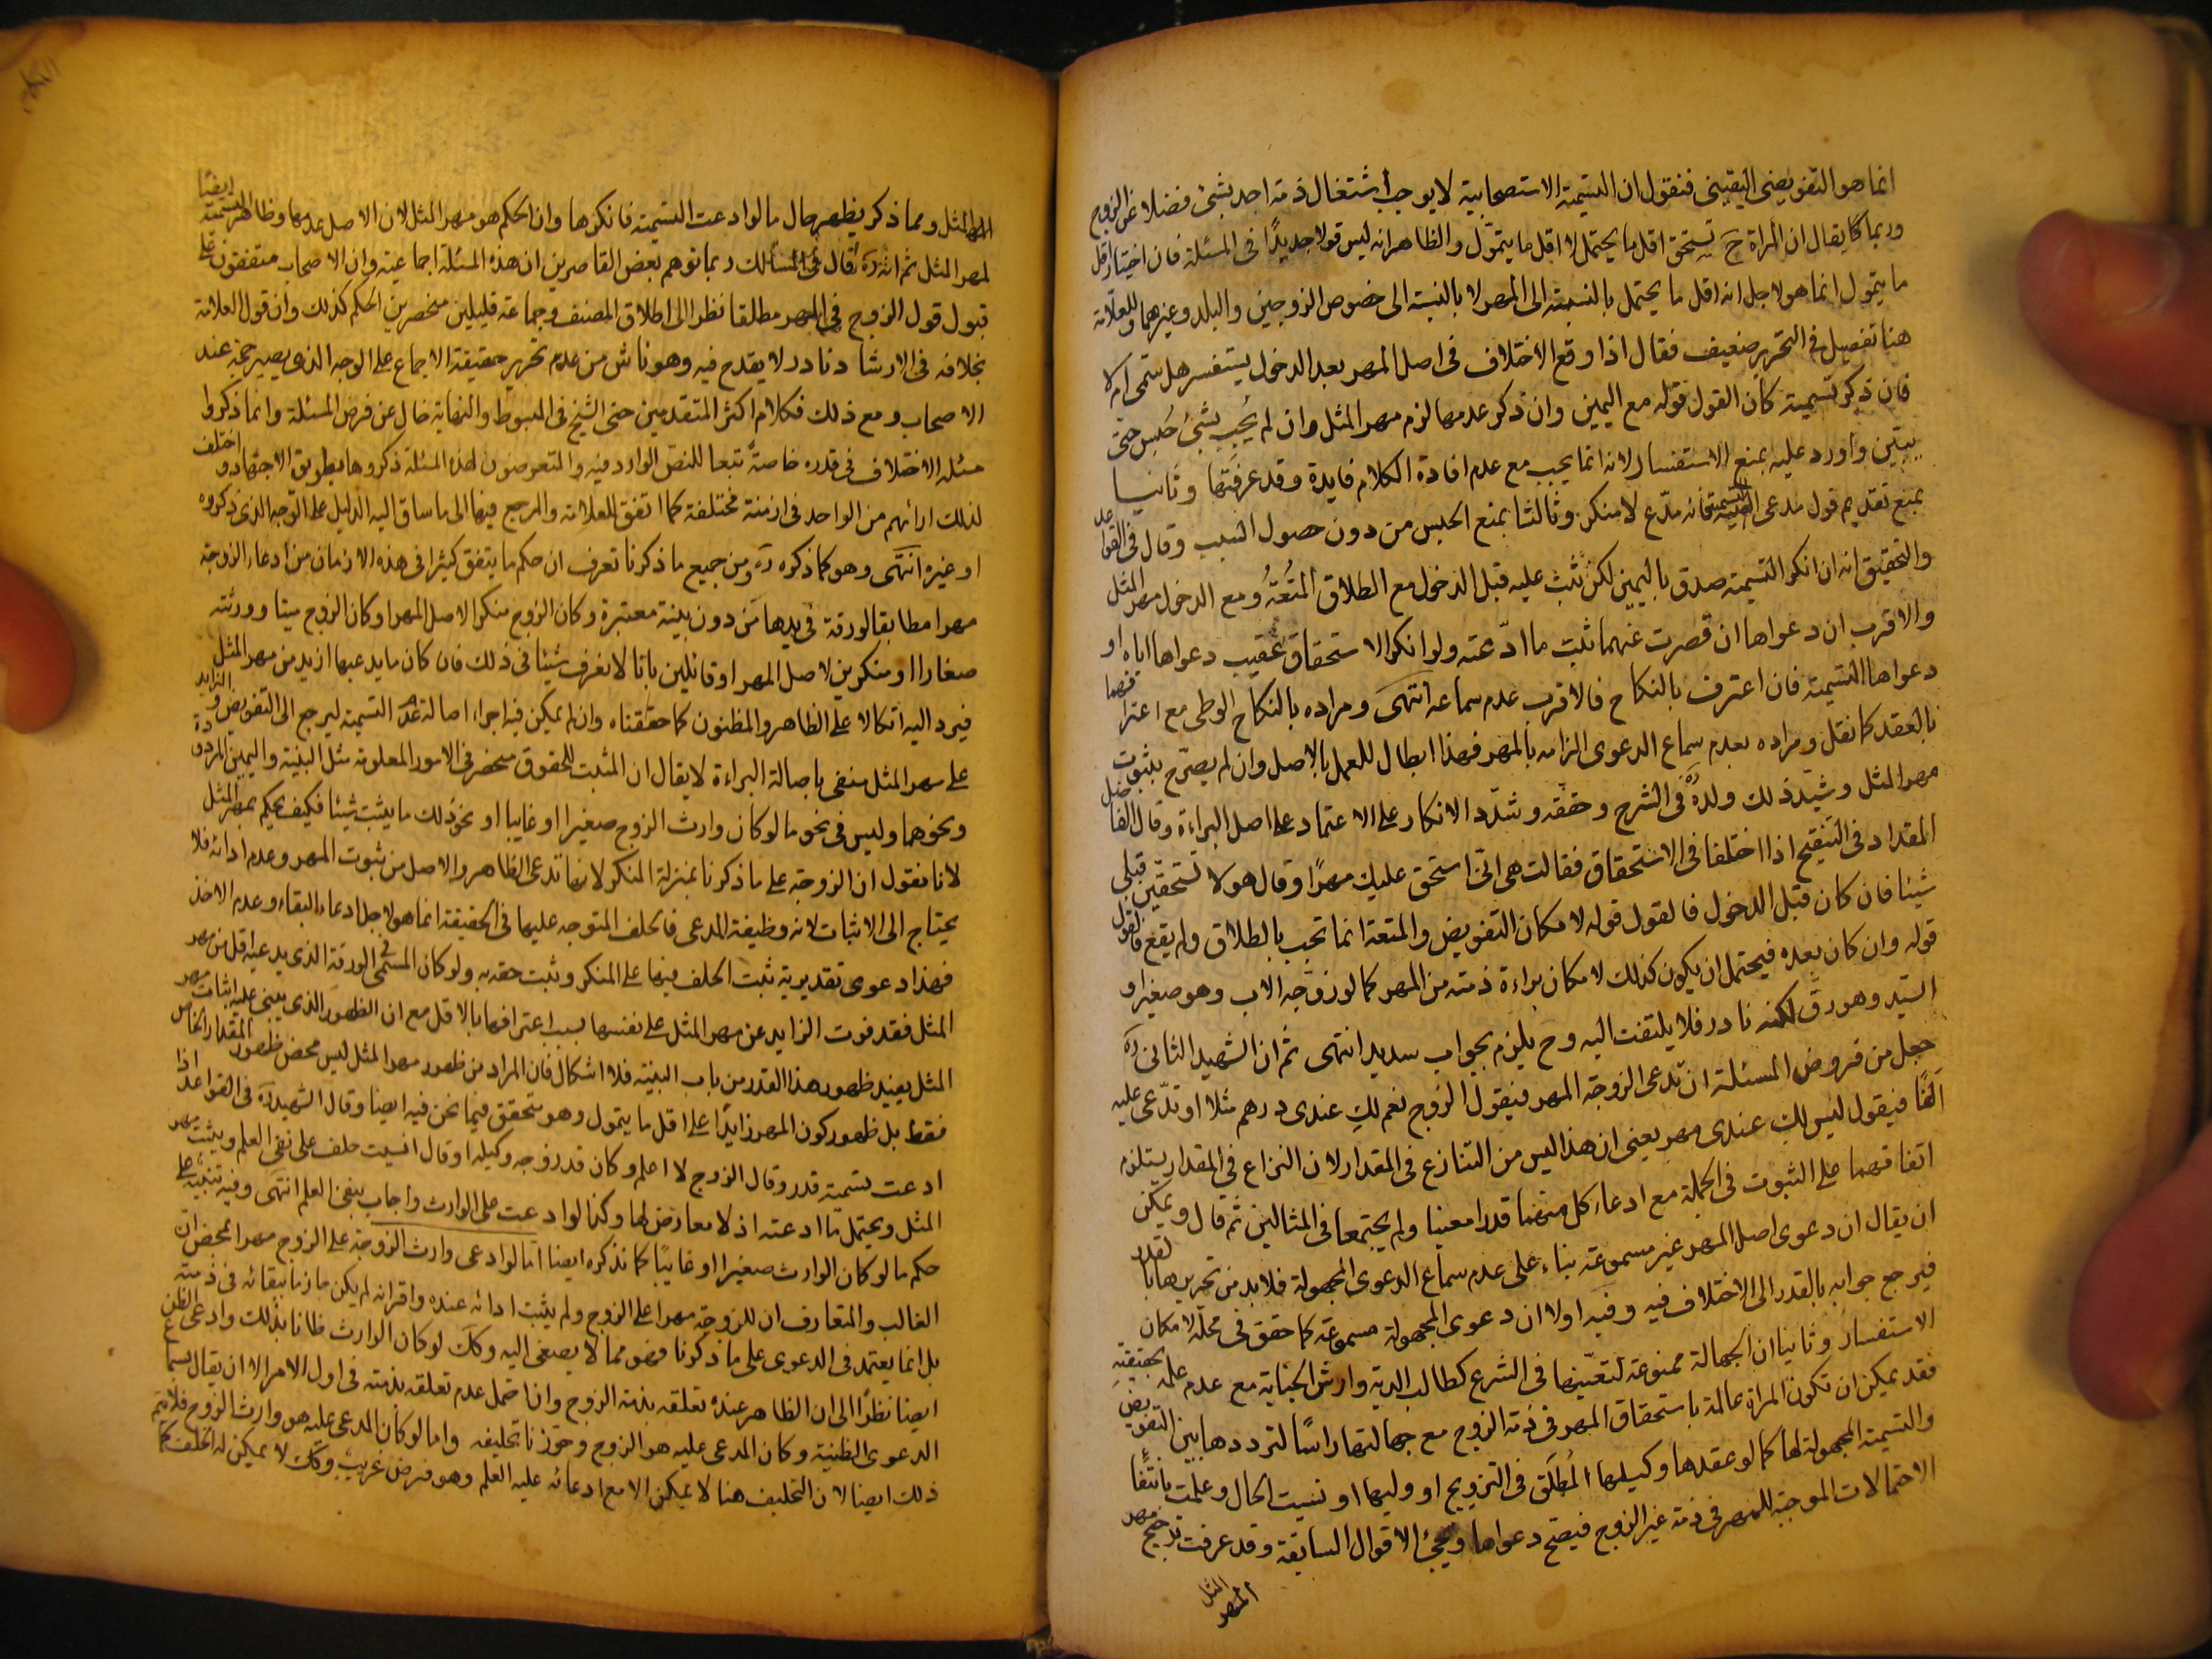 انما هو التفويضى اليقينى فنقول ان التسمية الاستصحابية لا يوجب اشتغال ذمة احد بشئ فضلا عن الزوج
وربما يقال ان المراة ح تستحق اقل ما يحتمل لا اقل ما يتموّل والظاهر انه ليس قولا جديدًا فى المسئلة فان اختيار اقل
ما يتمول انما هو لاجل انه اقل ما يحتمل بالنسبة الى المهر لا بالنسبة الى خصوص الزوجين والبلد وغيرهما وللعلامة
هنا تفصيل فى التحرير ضعيف فقال اذا وقع الاختلاف فى اصل المهر بعد الدخول يستفسر هل سمى ام لا
فان ذكر تسمية كان القول قوله مع اليمين وان ذكر عدمها لزم مهر المثل وان لم يجب بشئ حبس حتى
يبيّن واورد عليه بمنع الاستفسار لانه انما يجب مع عدم افادة الكلام فايدة وقد عرفتها وثانيا
بمنع تقديم قول مدعى التسمية فانه مدّع لا منكر وثالثا بمنع الحبس من دون حصول السبب وقال فى القواعد
والتحقيق انه ان انكر التسمية صدق باليمين لكن يثبت عليه قبل الدخول مع الطلاق المتعة ومع الدخول مهر المثل
والاقرب ان دعواها ان قصرت عنهما ثبت ما ادّعته ولو انكر الاستحقاق عقيب دعواها اياه او
دعواها التسمية فان اعترف بالنكاح فالاقرب عدم سماعه انتهى ومراده بالنكاح الوطى مع اعترافهما
بالعقد كما نقل ومراده بعدم سماع الدعوى الزامه بالمهر فهذا ابطال للعمل بالاصل وان لم يصرّح بثبوت
مهر المثل وشيّد ذلك ولده فى الشرح وحققه وشدّد الانكار على الاعتماد على اصل البراءة وقال الفاضل
المقداد فى التنقيح اذا اختلفا فى الاستحقاق فقالت هى انى استحق عليك مهرًا وقال هو لا تستحقين قبلى
شيئا فان كان قبل الدخول فالقول قوله لامكان التفويض والمتعة انما تجب بالطلاق ولم يقع فالقول
قوله وان كان بعده فيحتمل ان يكون كذلك لامكان براءة ذمته من المهر كما لو زوّجه الاب وهو صغير او
السيّد وهو رق لكنه نادر فلا يلتفت اليه وح يلزم بجواب سديد انتهى ثم ان الشهيد الثانى ره
جعل من فروض المسئلة ان تدعى الزوجة المهر فيقول الزوج نعم لك عندى درهم مثلا او تدّعى عليه
الفًا فيقول ليس لك عندى مهر يعنى ان هذا ليس من التنازع فى المقدار لان النزاع فى المقدار يستلزم
اتفاقهما على الثبوت فى الجملة مع ادعاء كل منهما قدرا معينا ولم يجتمعا فى المثالين ثم قال ويمكن
ان يقال ان دعوى اصل المهر غير مسموعة بناء على عدم سماع الدعوى المجهولة فلا بد من تحريرها بالقدر
فيرجع جوابه بالقدر الى الاختلاف فيه وفيه اولا ان دعوى المجهولة مسموعة كما حقق فى محلّه لامكان
الاستفسار وثانيا ان الجهالة ممنوعة لتعيّنها فى الشرع كطالب الدية وارش الجناية مع عدم علمه بحقيقته
فقد يمكن ان تكون المراة عالمة باستحقاق المهر فى ذمة الزوج مع جهالتها راسًا لترددها بين التفويض
والتسمية المجهولة لها كما لو عقدها وكيلها المُطلَق فى التزويج او وليها او نسيت الحال وعلمت بانتفاء
الاحتمالات الموجبة للمهر فى ذمة غير الزوج فيصح دعواها ويجئ الاقوال السابقة وقد عرفت ترجيح مهر
المثل
المهر
المثل ومما ذكر يظهر حال ما لو ادعت التسمية فانكرها وان الحكم هو مهر المثل لان الاصل عدمها وظاهر التسمية ايضًا
لمهر المثل ثم انه ره قال فى المسالك ربما توهم بعض القاصرين ان هذه المسئلة اجماعية وان الاصحاب متفقون على
قبول قول الزوج فى المهر مطلقا نظرا الى اطلاق المصنف وجماعة قليلين منحصرين الحكم كذلك وان قول العلامة
بخلافه فى الارشاد نادر لا يقدح فيه وهو ناش من عدم تحرير حقيقة الاجماع على الوجه الذى يصير حجة عند
الاصحاب ومع ذلك فكلام اكثر المتقدمين حتى الشيخ فى المبسوط والنهاية خال عن فرض المسئلة وانما ذكروا
مسئلة الاختلاف فى قدره خاصة تبعا للنص الوارد فيه والمتعرضون لهذه المسئلة ذكروها بطريق الاجتهاد واختلف
لذلك ارائهم من الواحد فى ازمنة مختلفة كما اتفق للعلامة والمرجع فيها الى ما ساق اليه الدليل على الوجه الذى ذكروه
او غيره انتهى وهو كما ذكره ره ومن جميع ما ذكرنا تعرف ان حكم ما يتفق كثيرا فى هذه الازمان من ادعاء الزوجة
مهرا مطابقا لورقة فى يدها من دون بينة معتبرة وكان الزوج منكرا لاصل المهر او كان الزوج ميتا وورثته
صغارا او منكرين لاصل المهر او قائلين بانا لا نعرف شيئا فى ذلك فان كان ما يدعيها ازيد من مهر المثل
فيرد اليه اتكالا على الظاهر والمظنون كما حققناه وان لم يمكن فيه اجراء اصالة عدم التسمية ليرجع الى التفويض والزايد
على مهر المثل منفى باصالة البراءة لا يقال ان المثبت للحقوق منحصر فى الامور المعلومة مثل البينة واليمين المردودة
ونحوهما وليس فى نحو ما لو كان وارث الزوج صغيرا او غايبا او نحو ذلك ما يثبت شيئا فكيف يحكم بمهر المثل
لانا نقول ان الزوجة على ما ذكرنا بمنزلة المنكر لانها تدعى الظاهر والاصل من ثبوت المهر وعدم ادائه فلا
يحتاج الى الاثبات لانه وظيفة المدعى فالحلف المتوجه عليها فى الحقيقة انما هو لاجل ادعاء البقاء وعدم الاخذ
فهذا دعوى تقديرية ثبت الحلف فيها على المنكر وثبت حقه به ولو كان المسمى فى الورقة الذى يدعيه اقل من مهر
المثل فقد فوت الزايد عن مهر المثل على نفسها بسبب اعترافها بالاقل مع ان الظهور الذى يبنى عليه اثبات مهر
المثل يفيد ظهور هذا القدر من باب البينة فلا اشكال فان المراد من ظهور مهر المثل ليس محض ظهور المقدار الخاص
فقط بل ظهور كون المهر زايدًا على اقل ما يتمول وهو متحقق فيما نحن فيه ايضا وقال الشهيد ره فى القواعد اذا
ادعت تسمية قدر وقال الزوج لا اعلم وكان قد زوجه وكيله او قال انسيت حلف على نفى العلم ويثبت مهر
المثل ويحتمل ما ادعته اذ لا معارض لها وكذا لو ادعت على الوارث واجاب بنفى العلم انتهى وفيه تنبيه على
حكم ما لو كان الوارث صغيرا او غايبًا كما نذكره ايضا اما لو ادعى وارث الزوجة على الزوج مهرا بمحض ان
الغالب والمتعارف ان للزوجة مهرا على الزوج ولم يثبت ادائه عنده واقرانه لم يكن جازما ببقائه فى ذمته
بل انما يعتمد فى الدعوى على ما ذكرنا فهو مما لا يصغى اليه وكك لو كان الوارث ظانا بذلك وادعى الظن
ايضا نظرًا الى ان الظاهر عنده تعلقه بذمة الزوج وانا نحتمل عدم تعلقه بذمته فى اول الامر الا ان يقال بسماع
الدعوى الظنية وكان المدعى عليه هو الزوج وجوزنا تحليفه واما لو كان المدعى عليه هو وارث الزوج فلا يتم
ذلك ايضا لان التحليف هنا لا يمكن الا مع ادعائه عليه العلم وهو فرض غريب وكك لا يمكن له الحلف كما